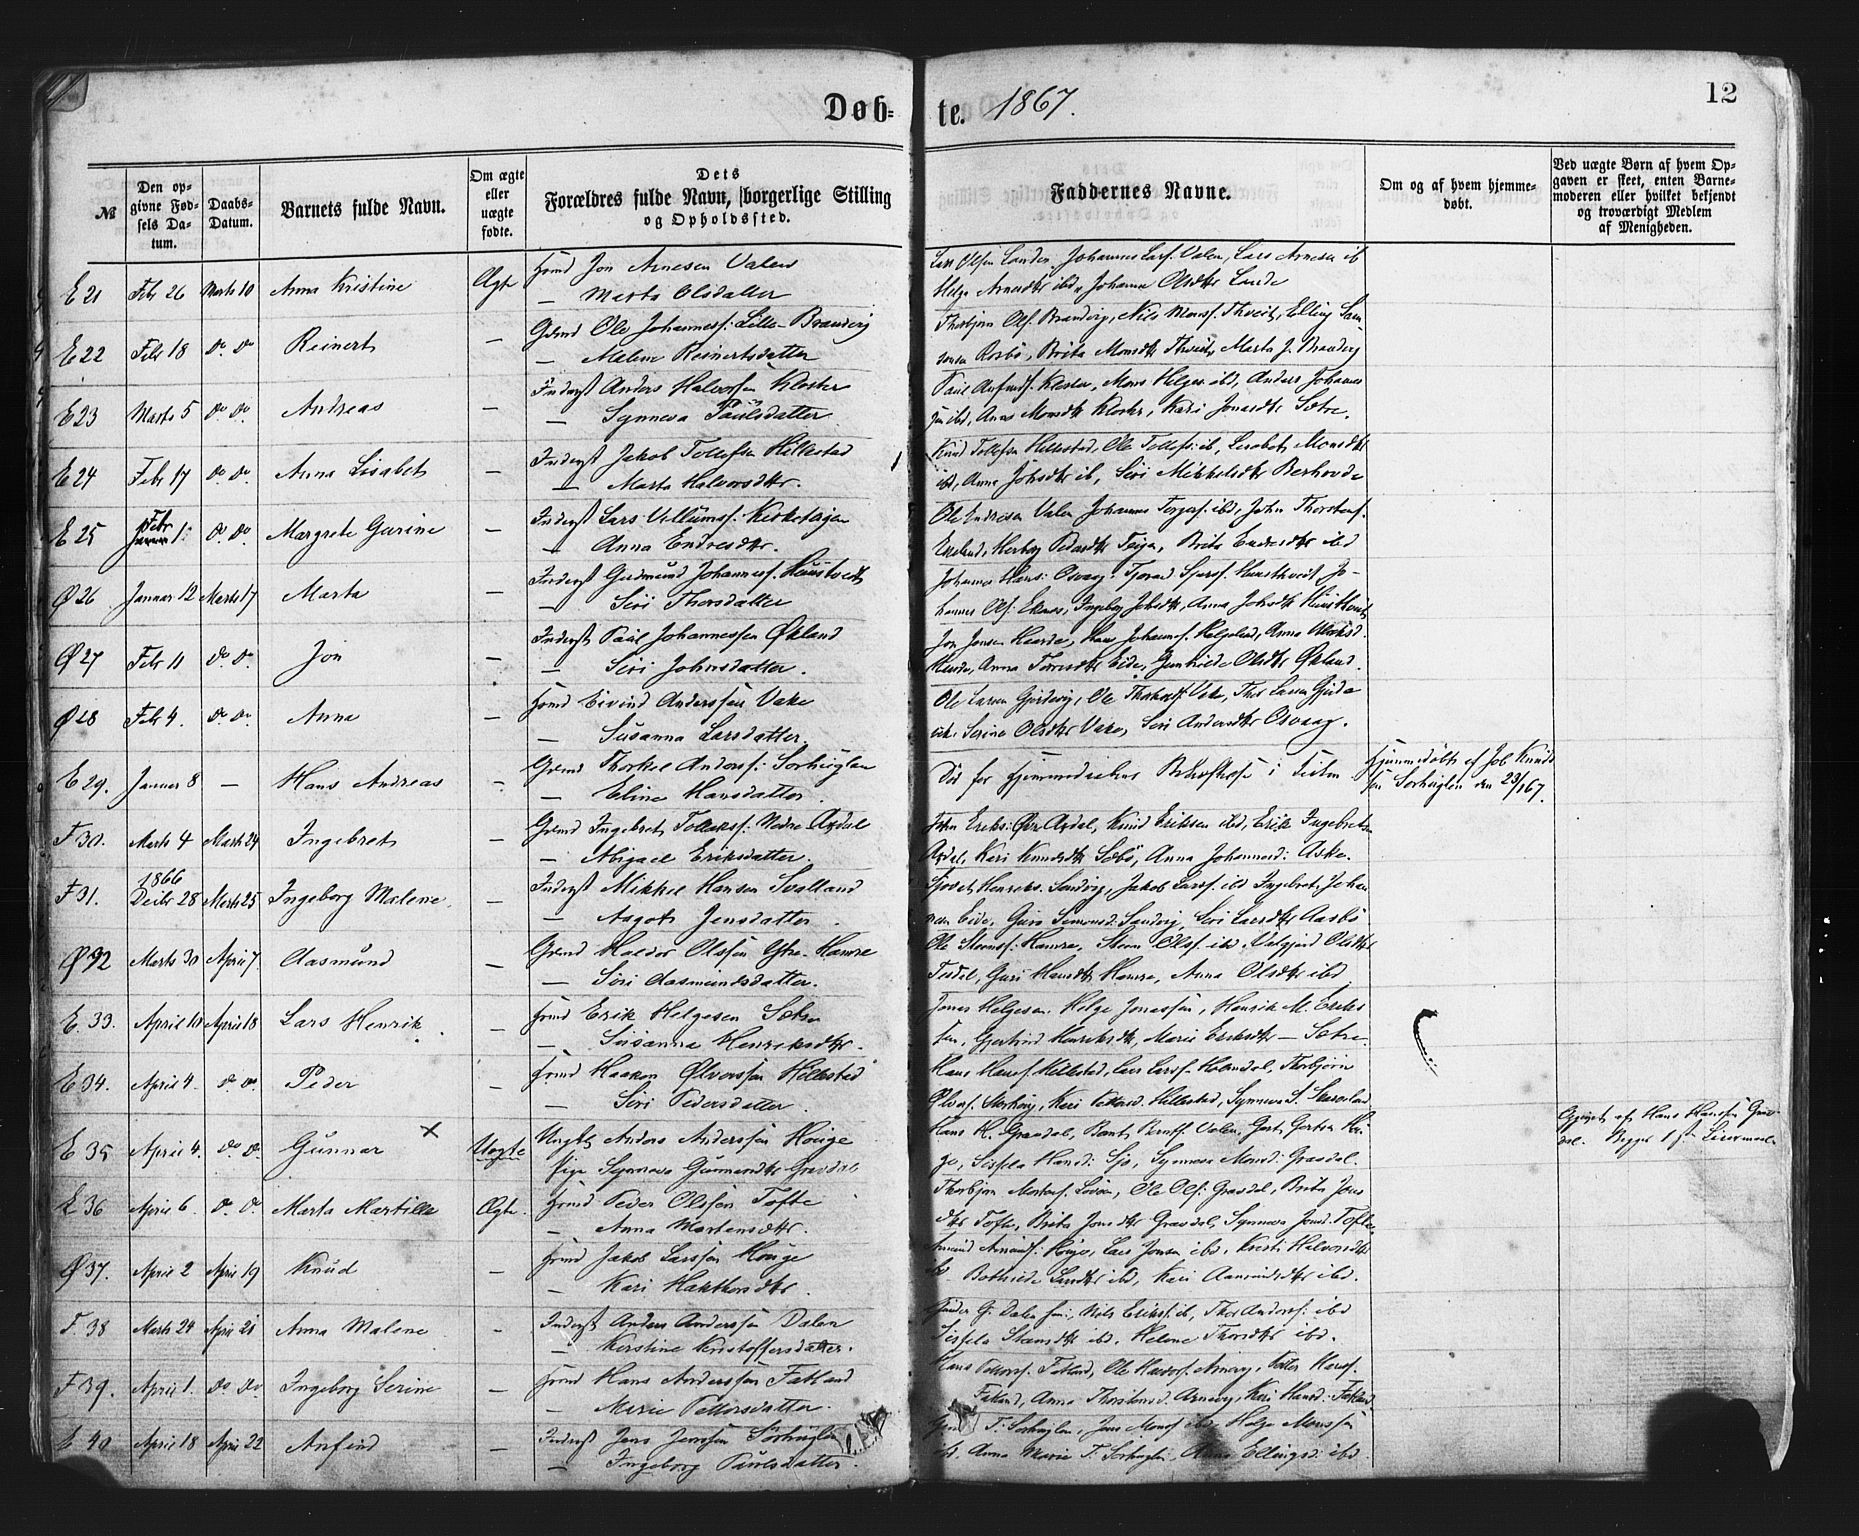 Døb=te. 1867.
12
№
Den opgivne Fødsels Datum.
Daabs-Datum.
Barnets fulde Navn.
Om ægte eller uægte fødte.
Dets Forældres fulde Navn, borgerlige Stilling og Opholdssted.
Faddernes Navne.
Om og af hvem hjemmedøbt.
Ved uægte Børn af hvem Opgaven er skeet, enten Barnemoderen eller hvilket bekjendt og troværdigt Medlem af Menigheden.
E 21 Febr 26 Marts 10 Anna Kristine Ægte Gmd Jon Arnesen Valen
— Marta Olsdatter
Lars Olsen Lande, Johannes Larss. Valen, Lars Arnesen ib
Helga Arnesdtr ibd, Johanna Olsdtr Lande
E 22 Febr 18 do do Reinert — Gmd Ole Johanness. Lille-Brandvig
— Malene Reinertsdatter
Thorbjørn Ols. Brandvig, Nils Monss. Thveit, Elling Sam-
sonsen Rosbø, Brita Monsdtr Thveit, Marta J. Brandvig
E 23 Marts 5 do do. Andreas — Inderst Anders Halvorsen Kloster
— Synneva Paulsdatter
Paul Kloster, Mons Helges. ibd, Anders Johannes
sen ibd, Anna Monsdtr Kloster, Kari Jonasdtr Sætre.
E 24 Febr 17 do do. Anna Lisabet — Inderst Jakob Tollefsen Hellestad
— Marta Halvorsdtr.
Knud Tollefsen Hellestad, Ole Tollefs. ib, Lisabet Monsdtr
ibd, Anna Johsdtr ib, Siri Mikkelsdtr Berhovde
E 25 Febr 1 do do. Margrete Gurine — Inderst Lars Villums. Kirketeigen
— Anna Endresdtr.
Ole Endresen Valen, Johannes ibd, John Thorstens.
Ekeland, Herborg Pedersdtr Teigen, Brita Endresdtr ibd
Ø 26 Januar 12 Marts 17 Marta — Inderst Gudmund Johanness. Hustvedt
— Siri Thorsdatter
Johannes Hans. Osvaag, Tjeran Sjurs. Hustvedt, Jo-
hannes Ols. Eknes, Ingeborg Johsdtr, Anna Johsdtr Hustvedt
Ø 27 Febr 11 do do. Jon — Inderst Paul Johannessen Økland
— Siri Johnsdatter.
Jon Jonsen Hovda, Hans Johanness. Helgeland, Anna
Hovda, Anna Eide, Gunhilde Olsdtr Økland.
Ø 28 Febr 4. do do. Anna — Gmd Eivind Anderssen Vake
— Susanna Larsdatter.
Ole Larsen Gjerdevig, Ole Vake, Thor Larsen Gjerde
vik, Serine Olsdtr Vake, Siri Andersdtr Osvaag.
E 29. Januar 8 — Hans Andreas — Gmd Thorkel Anders. Sørhuglen
— Eline Hansdatter.
Død før i
Hjemmedøbt af Job Knud
sen Sørhuglen den 23/1 67.
F 30. Marts 4 Marts 24 Ingebret — Gmd Ingebret Tollaks. Nedre Axdal
— Abigael Eriksdatter.
John Eriks. Øvre Axdal, Knud Eriksen ibd, Erik Ingebrets
Axdal, Kari Knudsdtr Sæbø, Anna Johannesd. Aske.
F 31. 1866 Decbr 28 Marts 25 Ingeborg Malene. — Inderst Mikkel Hansen Svalland
— Aagot Jensdatter.
Sjovat Henriks. Sandvig, Jakob Larss. ibd, Ingebret Johan
nesen Eide, Guri Simonsd. Sandvig, Siri Larsdtr Aasbø
Ø 32 Marts 30 April 7. Aasmund — Gmd Haldor Olssen Ytre-Hamre
— Siri Aasmundsdatter.
Ole Hamre, Steen Olss. ibd, Valgjerd Olsdtr
Guri Hansdtr Hamre, Anna Olsdtr ibd.
E. 33. April 10 April 18 Lars Henrik. — Gmd Erik Helgesen Sætre
— Susanna Henriksdtr.
Jonas Helgesen, Helge Jonassen, Henrik M. Eriks
sen, Gjertrud Henriksdtr, Marie Eriksdtr — Sætre
E 34. April 4. do do. Peder — Gmd Haakon Ølverssen Hellestad
— Siri Pedersdatter.
Hans Hanss. Hellestad, Lars Larss. Holmedal, Thorbjørn
Kari Hellestad, Synneva S.
E 35 April 4. do do. Gunnar × Uægte Ungkl Anders Anderssen Houge
Pige Synneva Gunnarsdtr Gravdal
Hans H. Gravdal, Bernt Berents. Valen, Hou
ge, Sissela Hansd. Sjo, Synneva Monsd. Gravdal.
Opgivet af Hans Hansen Grav-
dal. Begges 1ste Leiermaal
E 36 April 6. do do. Marta Martille Ægte. Gmd Peder Olssen Tofte
— Anna Martensdtr.
Thorbjørn Ole Ols. Gravdal, Brita Jons
dtr Tofte, Brita Jonsdtr Gravdal, Synneva Jonsd. Tofte
Ø 37. April 2 April 19 Knud — Gmd Jakob Larssen Houge
— Kari Hakthorsdtr.
Lars Jonsen ibd, Kristi Halvorsdtr
Bothilde ibd, Kari Aamundsdtr ibd.
F. 38 Marts 24 April 21 Anna Malene — Inderst Anders Anderssen Dalen
— Kerstine Kristoffersdatter.
G. Dalen, Nils Eriks. ib, Thor Anders. ibd
Sissela ibd. Helene Thorsdtr ibd.
F 39. April 1. do do Ingeborg Serine — Gmd Hans Anderssen Fatland
— Marie Pettersdatter.
Hans Fatland, Ole Arnevig, Petter Hanss.
Fatland, Anna Arnevig, Kari Hansd. Fatland
E 40 April 18 April 22 Anfind — Inderst Jens Jenssen Sørhuglen
— Ingeborg Paulsdatter.
T. Sørhuglen, Jens Helge Monssen
Anna Marie T. Sørhuglen, Anna Ellingsd. ibd